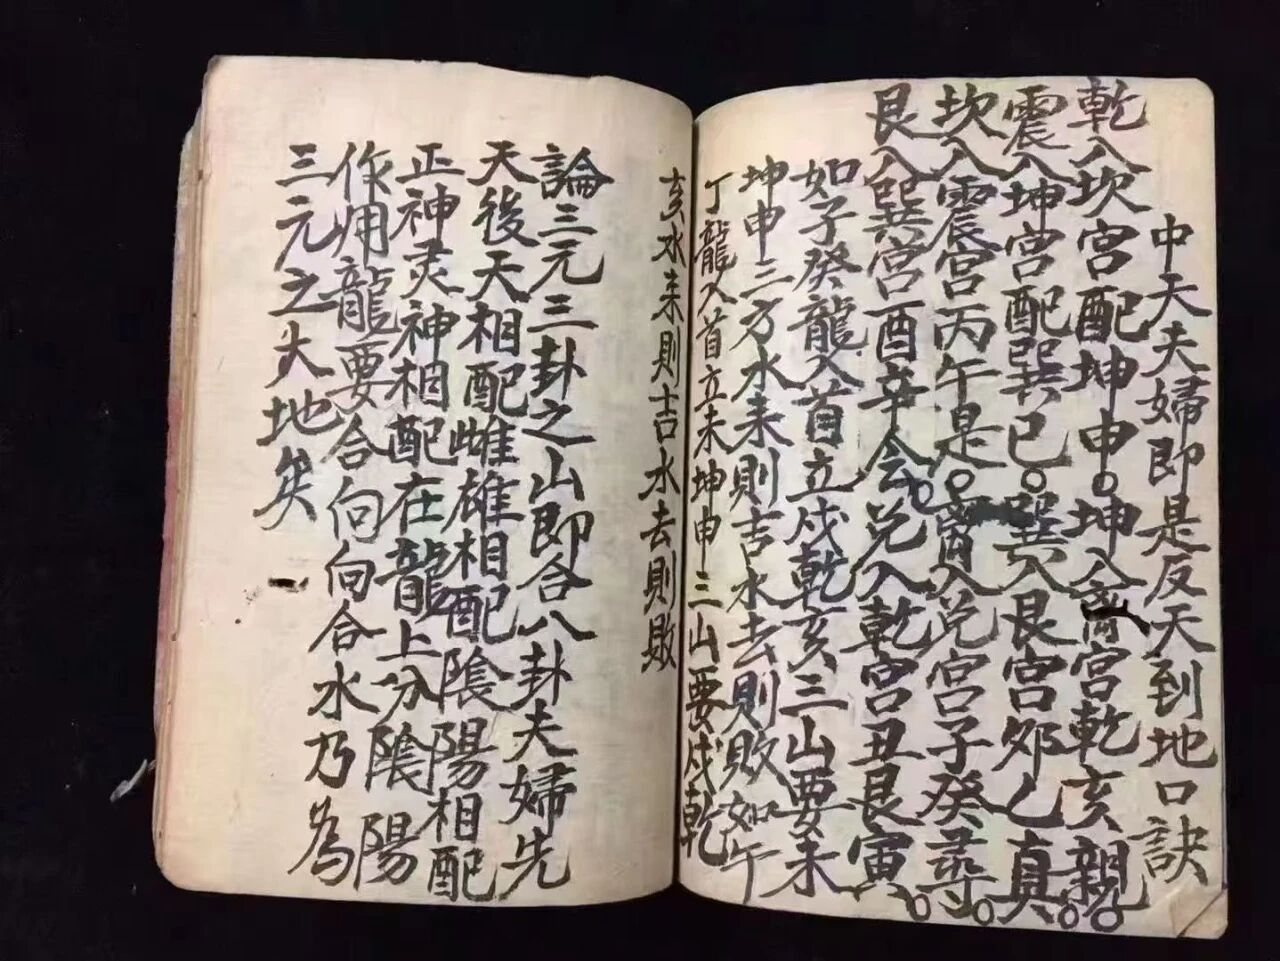 中天夫婦即是反天到地口訣
乾入坎宮配坤申。坤入离宮乾亥親。
震入坤宮配巽巳。巽入艮宮夘乙真。
坎入震宮丙午是。离入兌宮子癸尋。
艮入巽宮酉辛会。兌入乾宮丑艮寅。
如子癸龍入首立戌乾亥三山要未
坤申三方水来則吉水去則敗如午
丁龍入首立未坤申三山要戌乾
亥水来則吉水去則敗
論三元三卦之山即合八卦夫婦先
天後天相配雌雄相配陰陽相配
正神灵神相配在龍上分陰陽
作用龍要合向向合水乃為
三元之大地矣